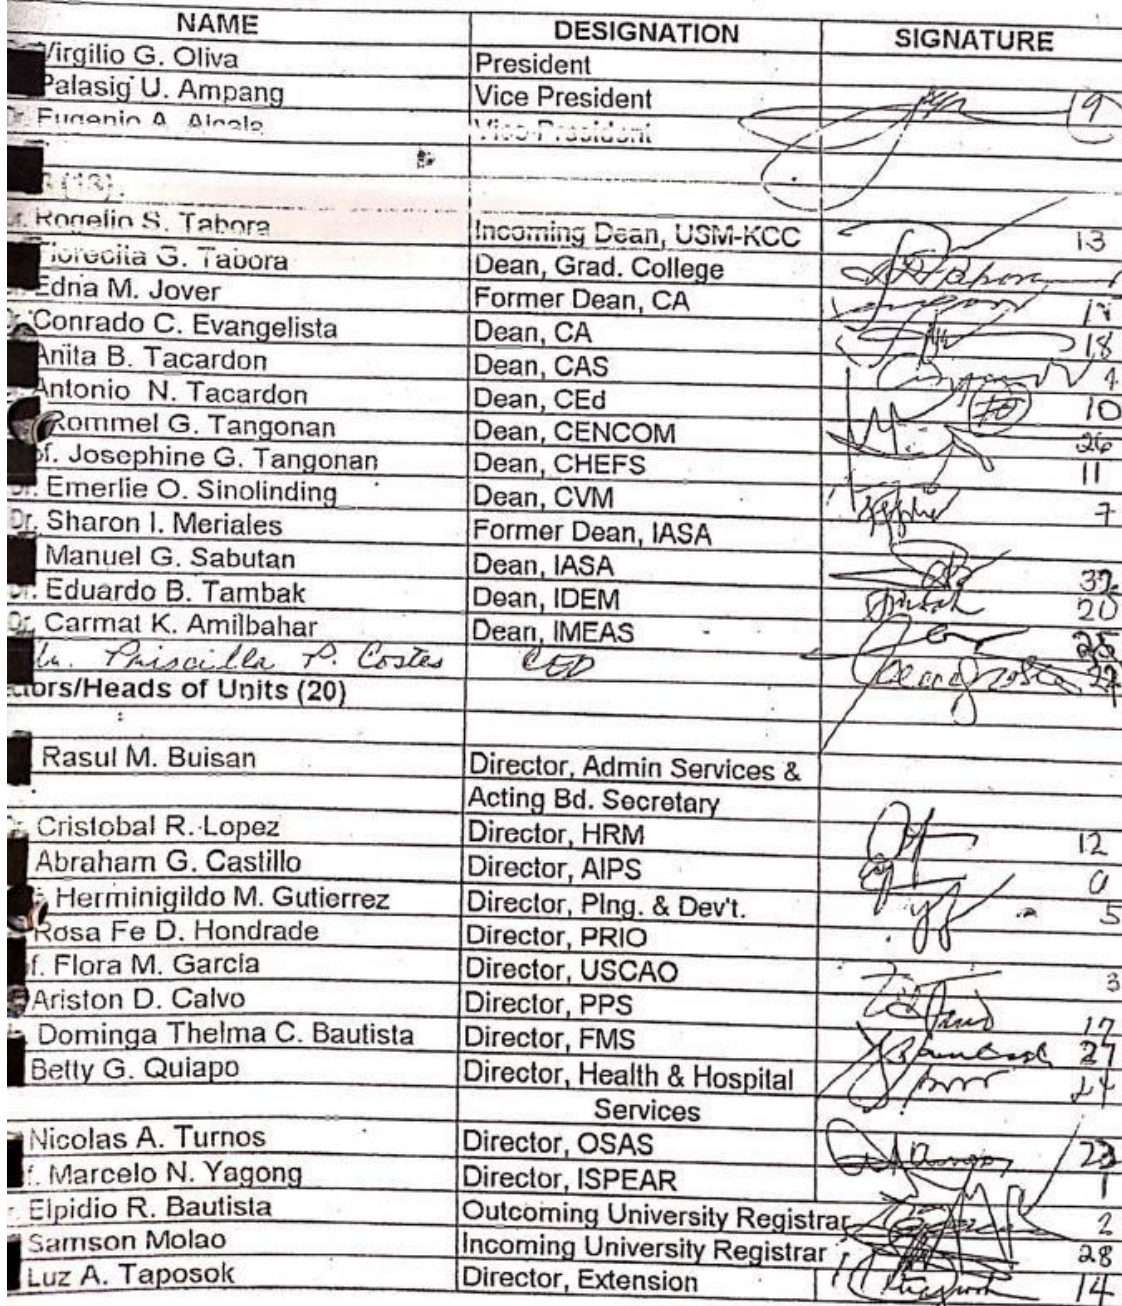 NAME DESIGNATION SIGNATURE
Virgilio G. Oliva President
Palasig U. Ampang Vice President
Dr. Eugenio A. Alcala Vice President 19
(13)
Rogelio S. Tabora Incoming Dean, USM-KCC 13
Florecita G. Tabora Dean, Grad. College
Edna M. Jover Former Dean, CA
Conrado C. Evangelista Dean, CA 18
Anita B. Tacardon Dean, CAS
Antonio N. Tacardon Dean, CEd 10
Rommel G. Tangonan Dean, CENCOM 26
of. Josephine G. Tangonan Dean, CHEFS 11
Dr. Emerlie O. Sinolinding Dean, CVM 7
Dr. Sharon I. Meriales Former Dean, IASA
Manuel G. Sabutan Dean, IASA 32
Dr. Eduardo B. Tambak Dean, IDEM 20
Dr. Carmat K. Amilbahar Dean, IMEAS 25
Priscilla P. Costes
ctors/Heads of Units (20)
Rasul M. Buisan Director, Admin Services &
Acting Bd. Secretary
Cristobal R. Lopez Director, HRM 12
Abraham G. Castillo Director, AIPS
Herminigildo M. Gutierrez Director, Plng. & Dev't. 5
Rosa Fe D. Hondrade Director, PRIO
f. Flora M. Garcia Director, USCAO 3
Ariston D. Calvo Director, PPS 17
Dominga Thelma C. Bautista Director, FMS 27
Betty G. Quiapo Director, Health & Hospital 24
Services
Nicolas A. Turnos Director, OSAS 23
f. Marcelo N. Yagong Director, ISPEAR 1
Elpidio R. Bautista Outcoming University Registrar 2
Samson Molao Incoming University Registrar 28
Luz A. Taposok Director, Extension 14